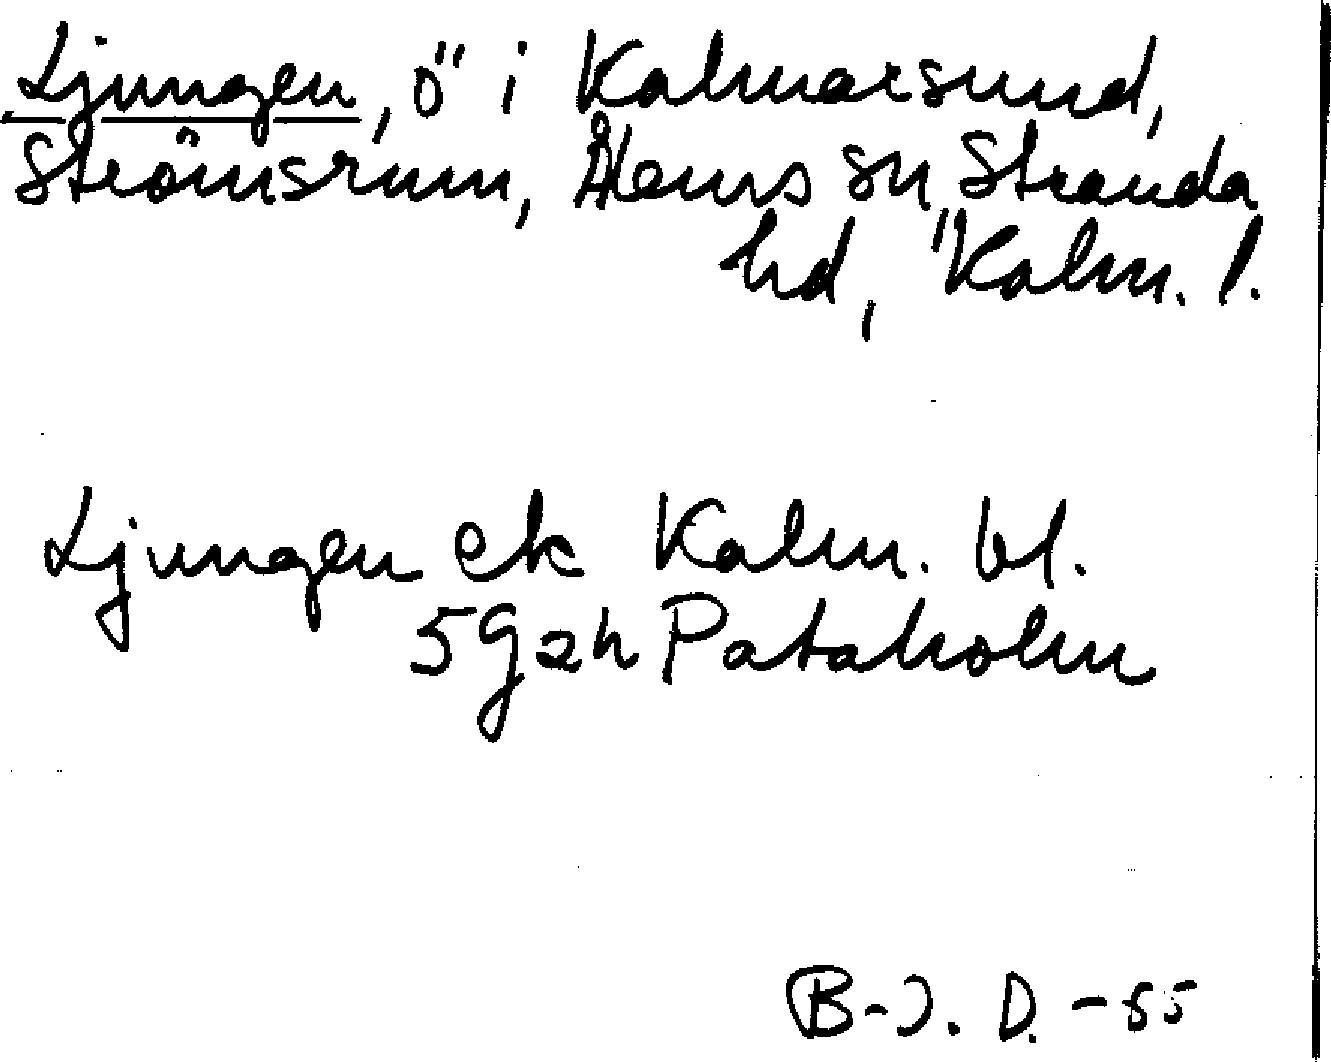 Ljungen, ö i Kalmarsund,
Strömsrum, Ålems sn, Stranda
hd, Kalm. l.
Ljungen ek Kalm. bl.
5G2h Pataholm
B-J. D. -55